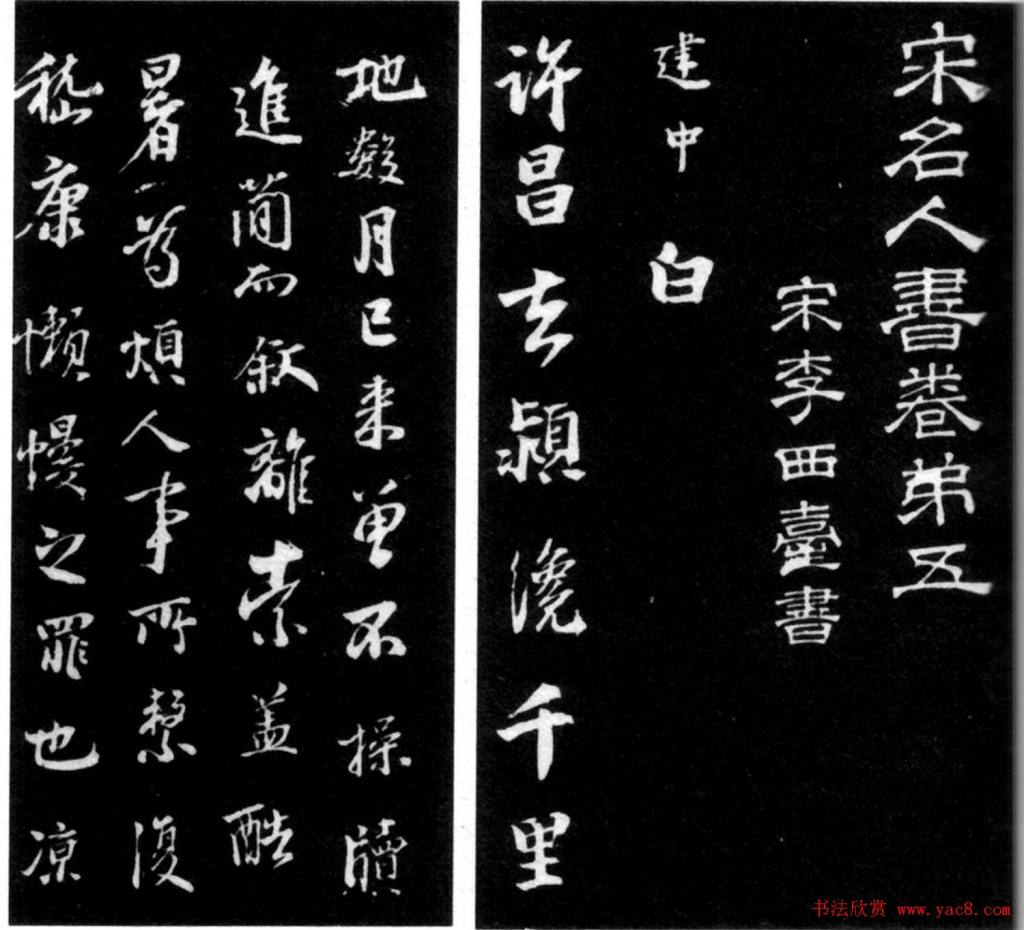 宋名人書卷弟五
宋李西臺書
建中白
許昌去潁纔千里
地數月已来曾不操牘
進簡而叙離索盖酷
暑煩人事所繫復
嵇康懶慢之罪也凉
书法欣赏 www.yac8.com